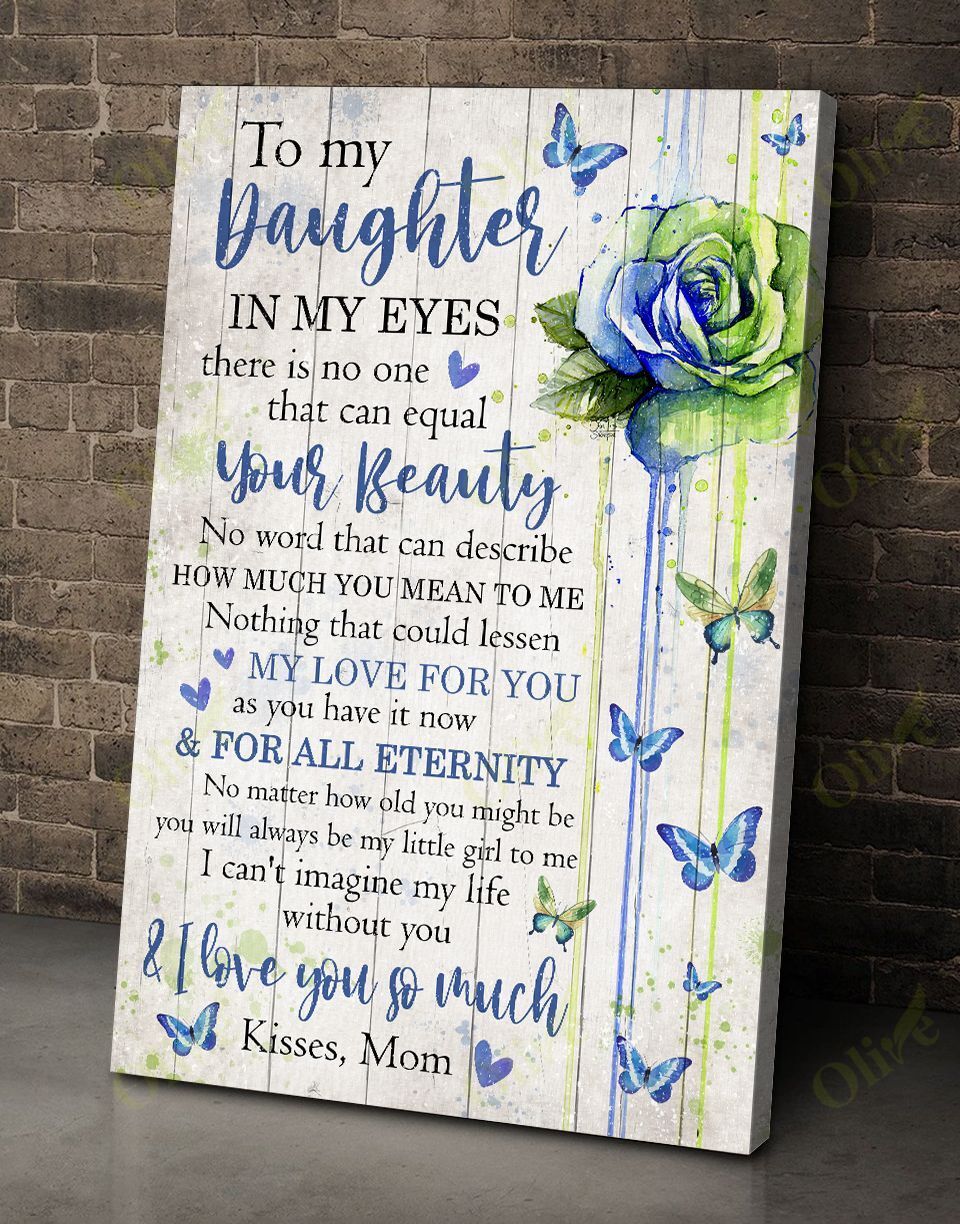 To my
Daughter
IN MY EYES
there is no one
that can equal
your Beauty
No word that can describe
HOW MUCH YOU MEAN TO ME
Nothing that could lessen
MY LOVE FOR YOU
as you have it now
& FOR ALL ETERNITY
No matter how old you might be
you will always be my little girl to me
I can't imagine my life
without you
& I love you so much
Kisses, Mom
Olive
Olive
Olive
Olive